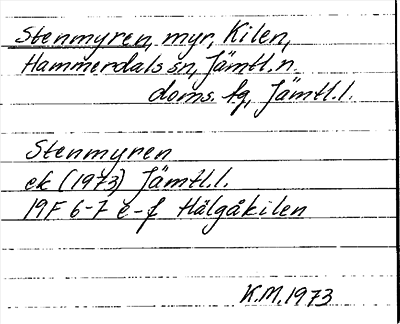 Stenmyren, myr, Kilen,
Hammerdals sn, Jämtl. n.
doms. fg, Jämtl. l.
Stenmyren
ek (1973) Jämtl. l.
19F 6-7 e-f Hälgåkilen
K.M. 1973